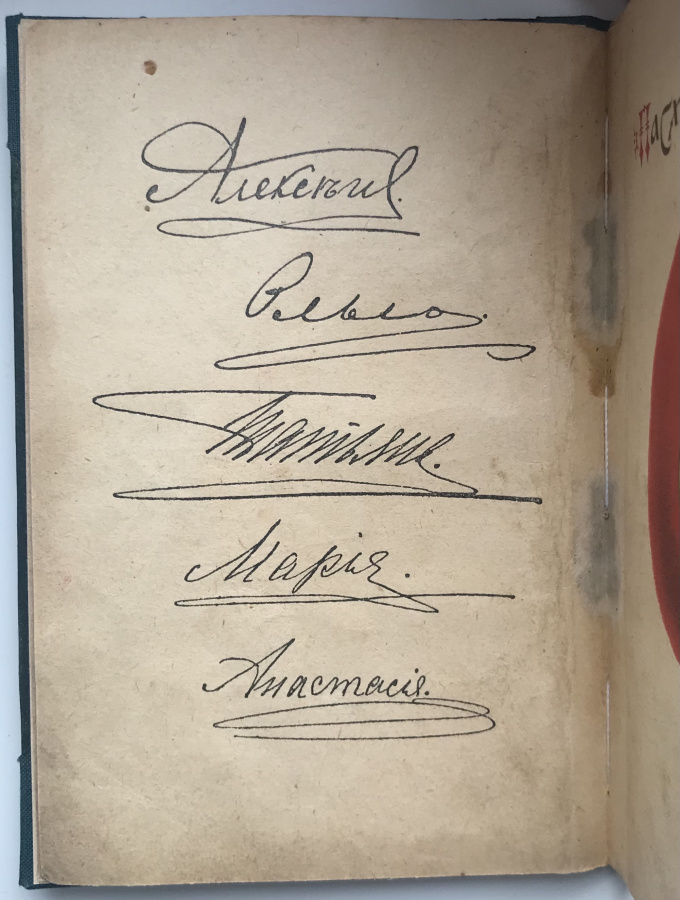 Алексѣй.
Ольга.
Татьяна.
Марія.
Анастасія.
Пасх